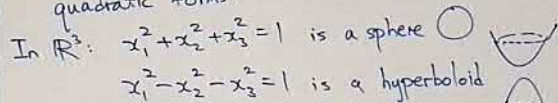 quadratic forms
In ℝ³: x₁² + x₂² + x₃² = 1 is a sphere
x₁² - x₂² - x₃² = 1 is a hyperboloid